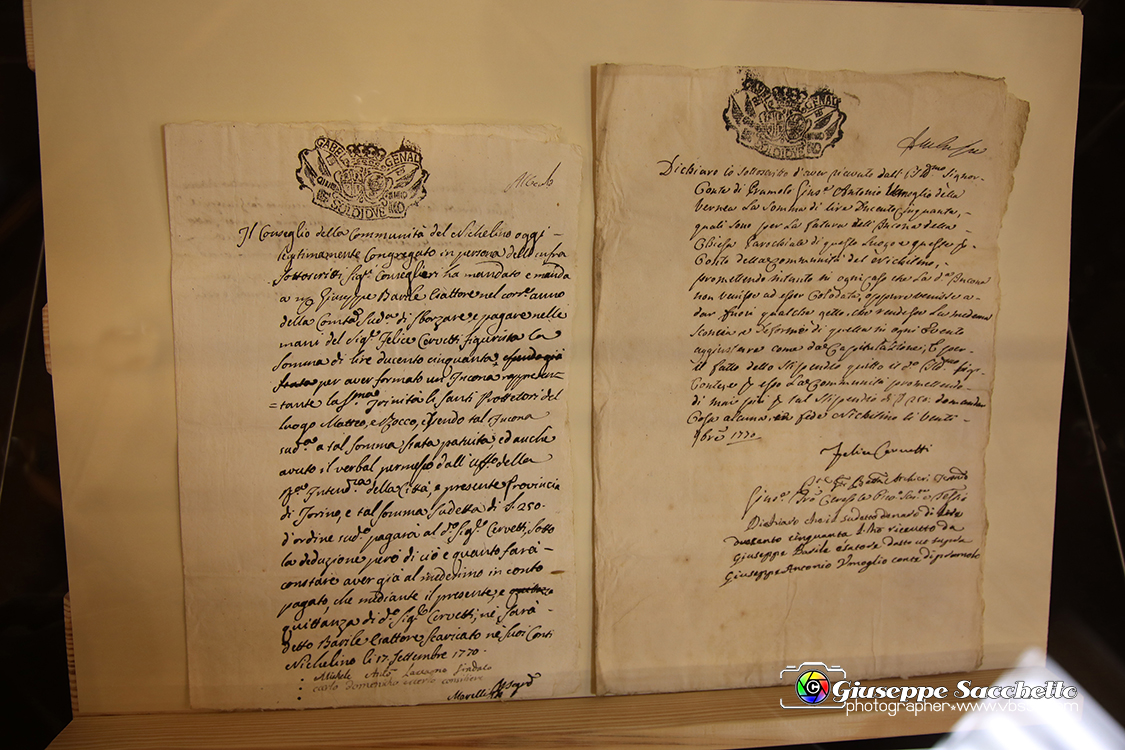 GABEL GENAL
SOLDI DVE
Il Conseglio della Communità del Nichelino oggi
legitimamente Congregato in persona dell'infra
sottoscritti Sig.ri Conseglieri ha mandato e manda
a Giuseppe Barile Esattore nel corr.e anno
della Com.tà Sud.a di sborzare, e pagare nelle
mani del Sig.r Felice Cervetti figurista la
somma di lire ducento cinquanta
per aver formato un' Incona rappresen-
tante la SS.ma Trinità, li Santi Protettori del
luogo Matteo, e Rocco, essendo tal Incona
sud.a a tal somma stata patuita, ed anche
avuto il verbal permesso dall' Uff.o della
R.a Intend.za della Città, e presente Provincia
di Torino, e tal somma sudetta di L. 250.
d'ordine sud.o pagarà al d.o Sig.r Cervetti, sotto
la deduzione però di ciò e quanto farà
constare aver già al medesimo in conto
pagato, che mediante il presente, e
quittanza di d.o Sig.r Cervetti, ne sarà
detto Barile Esattore scaricato ne' suoi Conti
Nichelino li 17. Settembre 1770.
Michele Ant.o Sindaco
carlo domenico consiliere
GABEL GENAL
SOLDI DVE
Dichiaro io sottoscritto d'aver ricevuto dall' Ill.mo Signor
Conte di Pramolo Gius.e Antonio Umoglio della
Vernea La somma di lire Ducento Cinquanta,
quali sono per La fatura dell' Ancona della
Chiesa Parochiale di questo Luogo e queste p.
Conto della Communità del Nichilino,
promettendo intanto in ogni caso che La d.a Ancona
non venisse ad esser Colodata, oppure venisse a
dar fuori qualche getto, che rendesse La medema
sconcia e deforme di quella in ogni Evento
aggiustare come da Capitolazione, E per
il fatto dello Stipendio quitto il d.o Ill.mo Sig.r
Conte, e p. esso La Communità promettendo
di mai più p. tal Stipendio di L. 250. domandar
Cosa alcuna, in fede Nichilino li venti
9bre 1770
Felice Cervetti
Dichiaro che il sudetto denaro di lire
duecento cinquanta l'ho ricevuto da
Giuseppe Barile esatore datto ut supra
Giuseppe Antonio Umoglio conte di pramolo
© Giuseppe Sacchelle